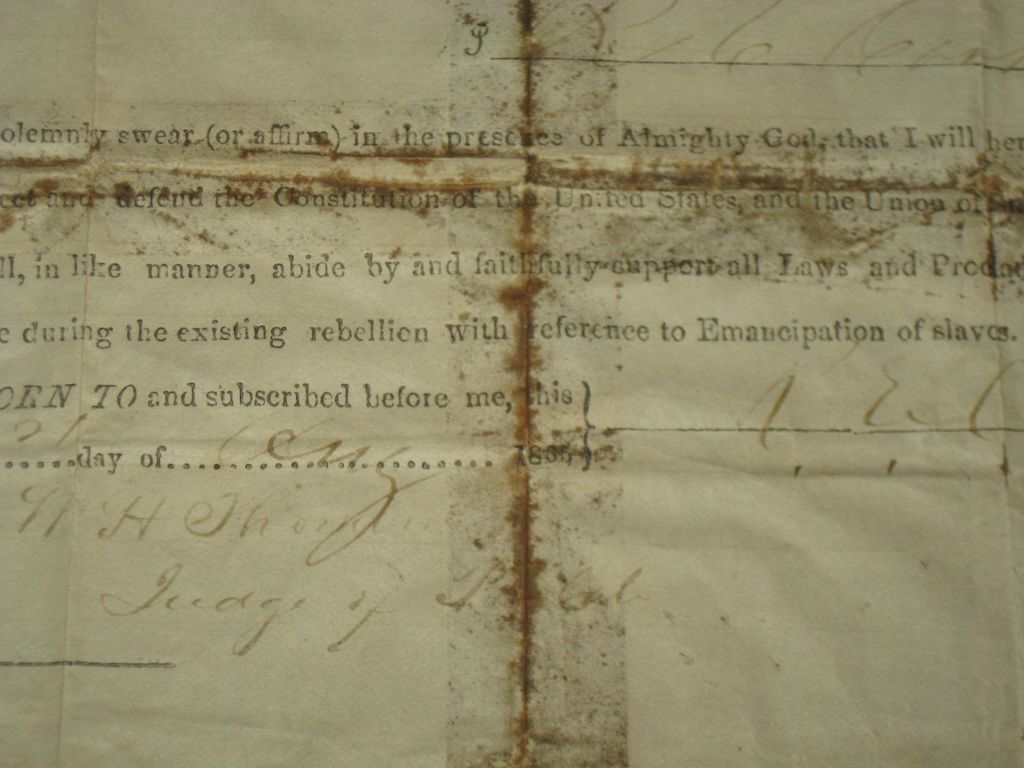 olemnly swear (or affirm) in the presence of Almighty God, that I will her
ect and defend the Constitution of the United States, and the Union of
ll, in like manner, abide by and faithfully support all Laws and Proclam
e during the existing rebellion with reference to Emancipation of slaves.
ORN TO and subscribed before me, this }
21 day of Aug 1865 N. E.
W H Thompson
Judge of Probate